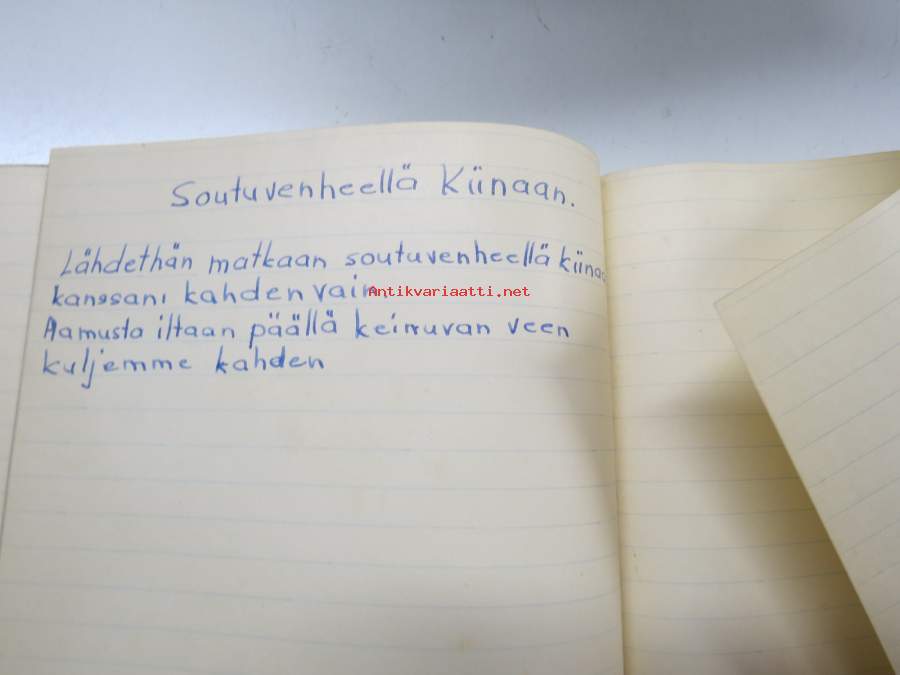 Soutuvenheellä Kiinaan.
Lähdethän matkaan soutuvenheellä kiinaa
kanssani kahden vain
Antikvariaatti.net
Aamusta iltaan päällä keinuvan veen
kuljemme kahden